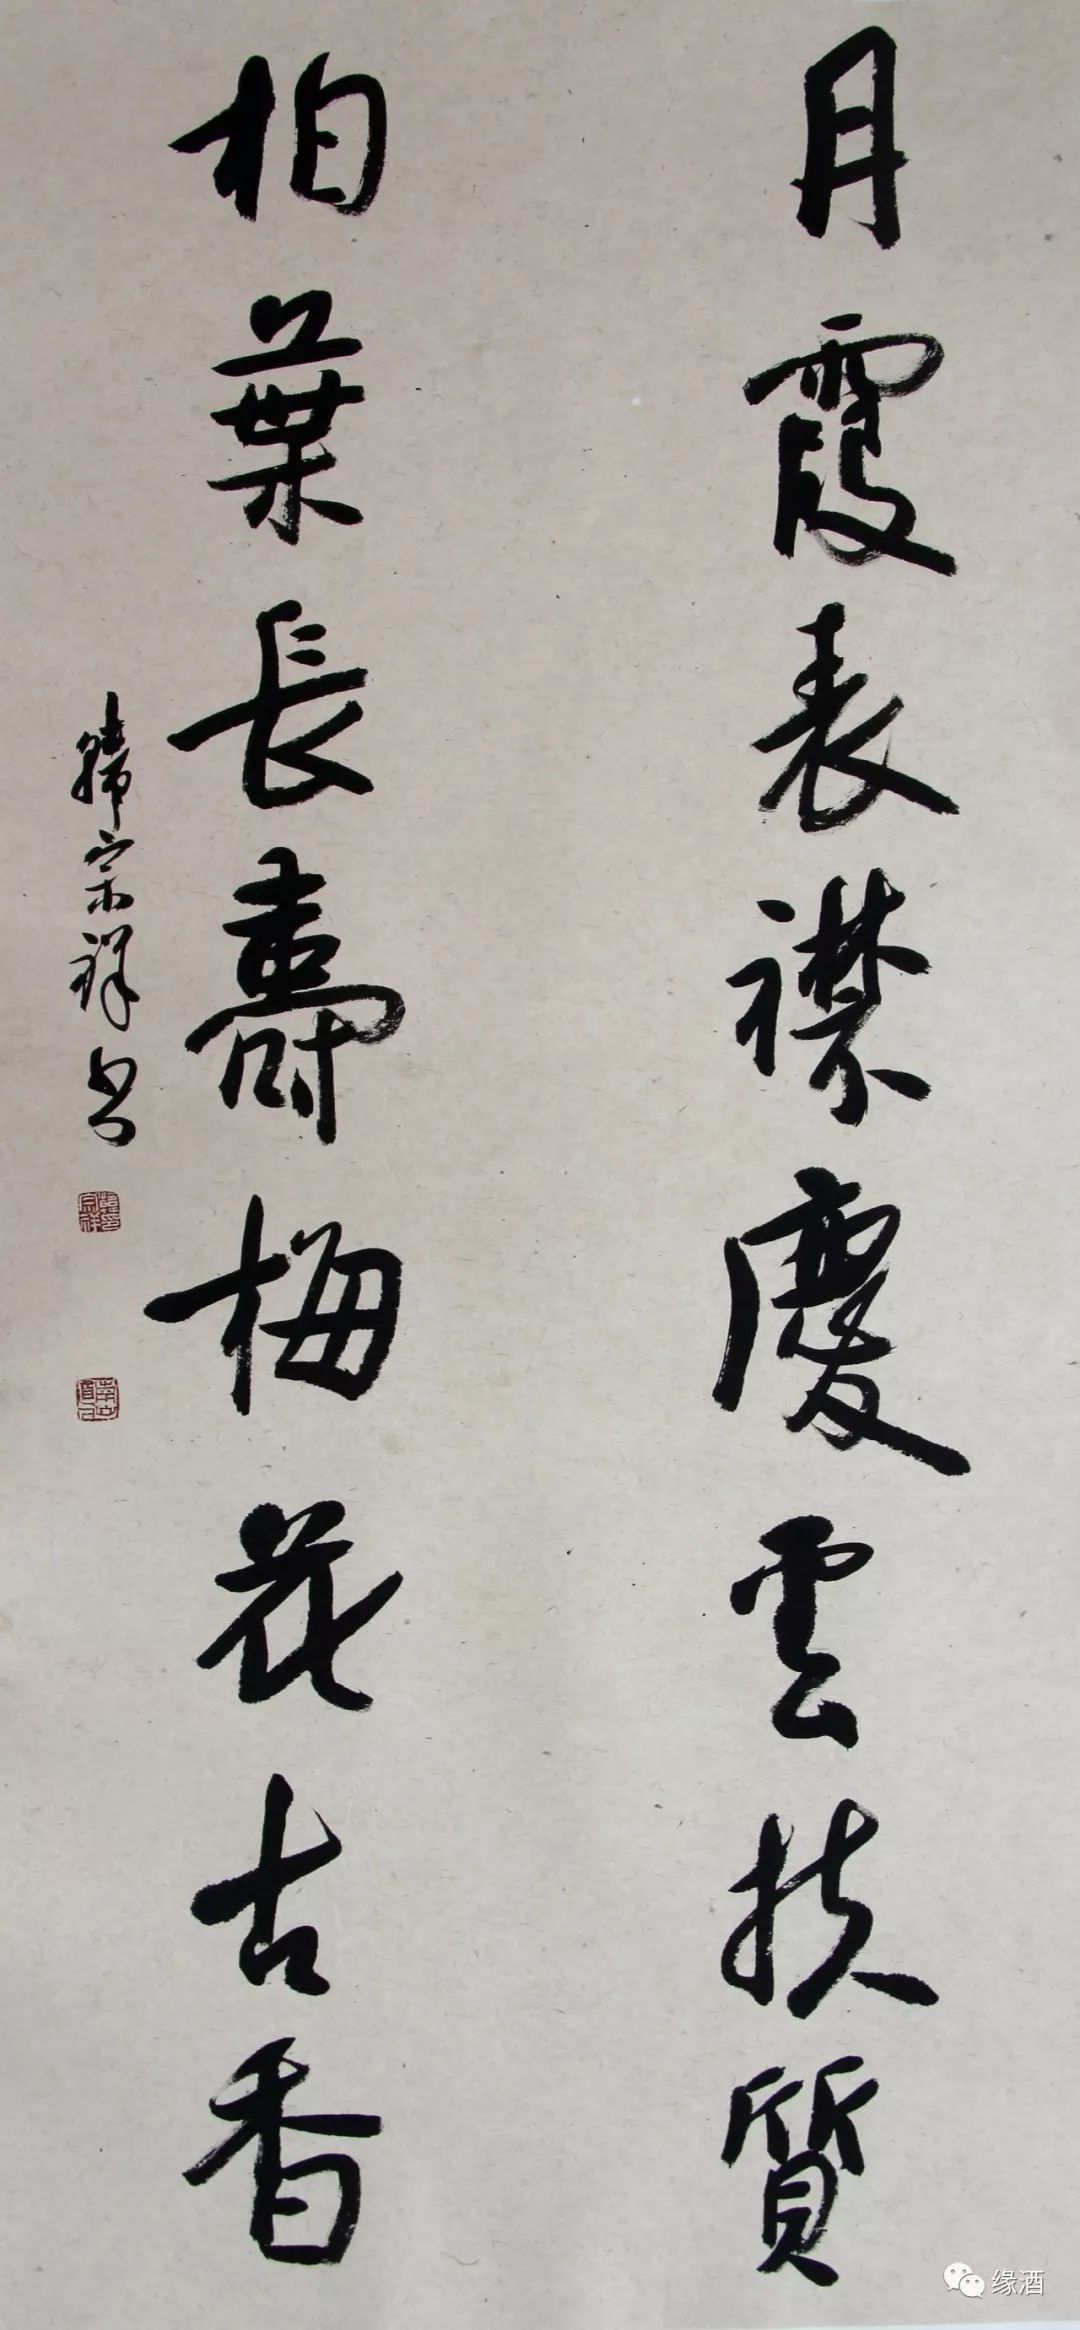 月霞表襟慶雲扶質
柏葉長壽梅花古香
韓宗祥书
缘酒